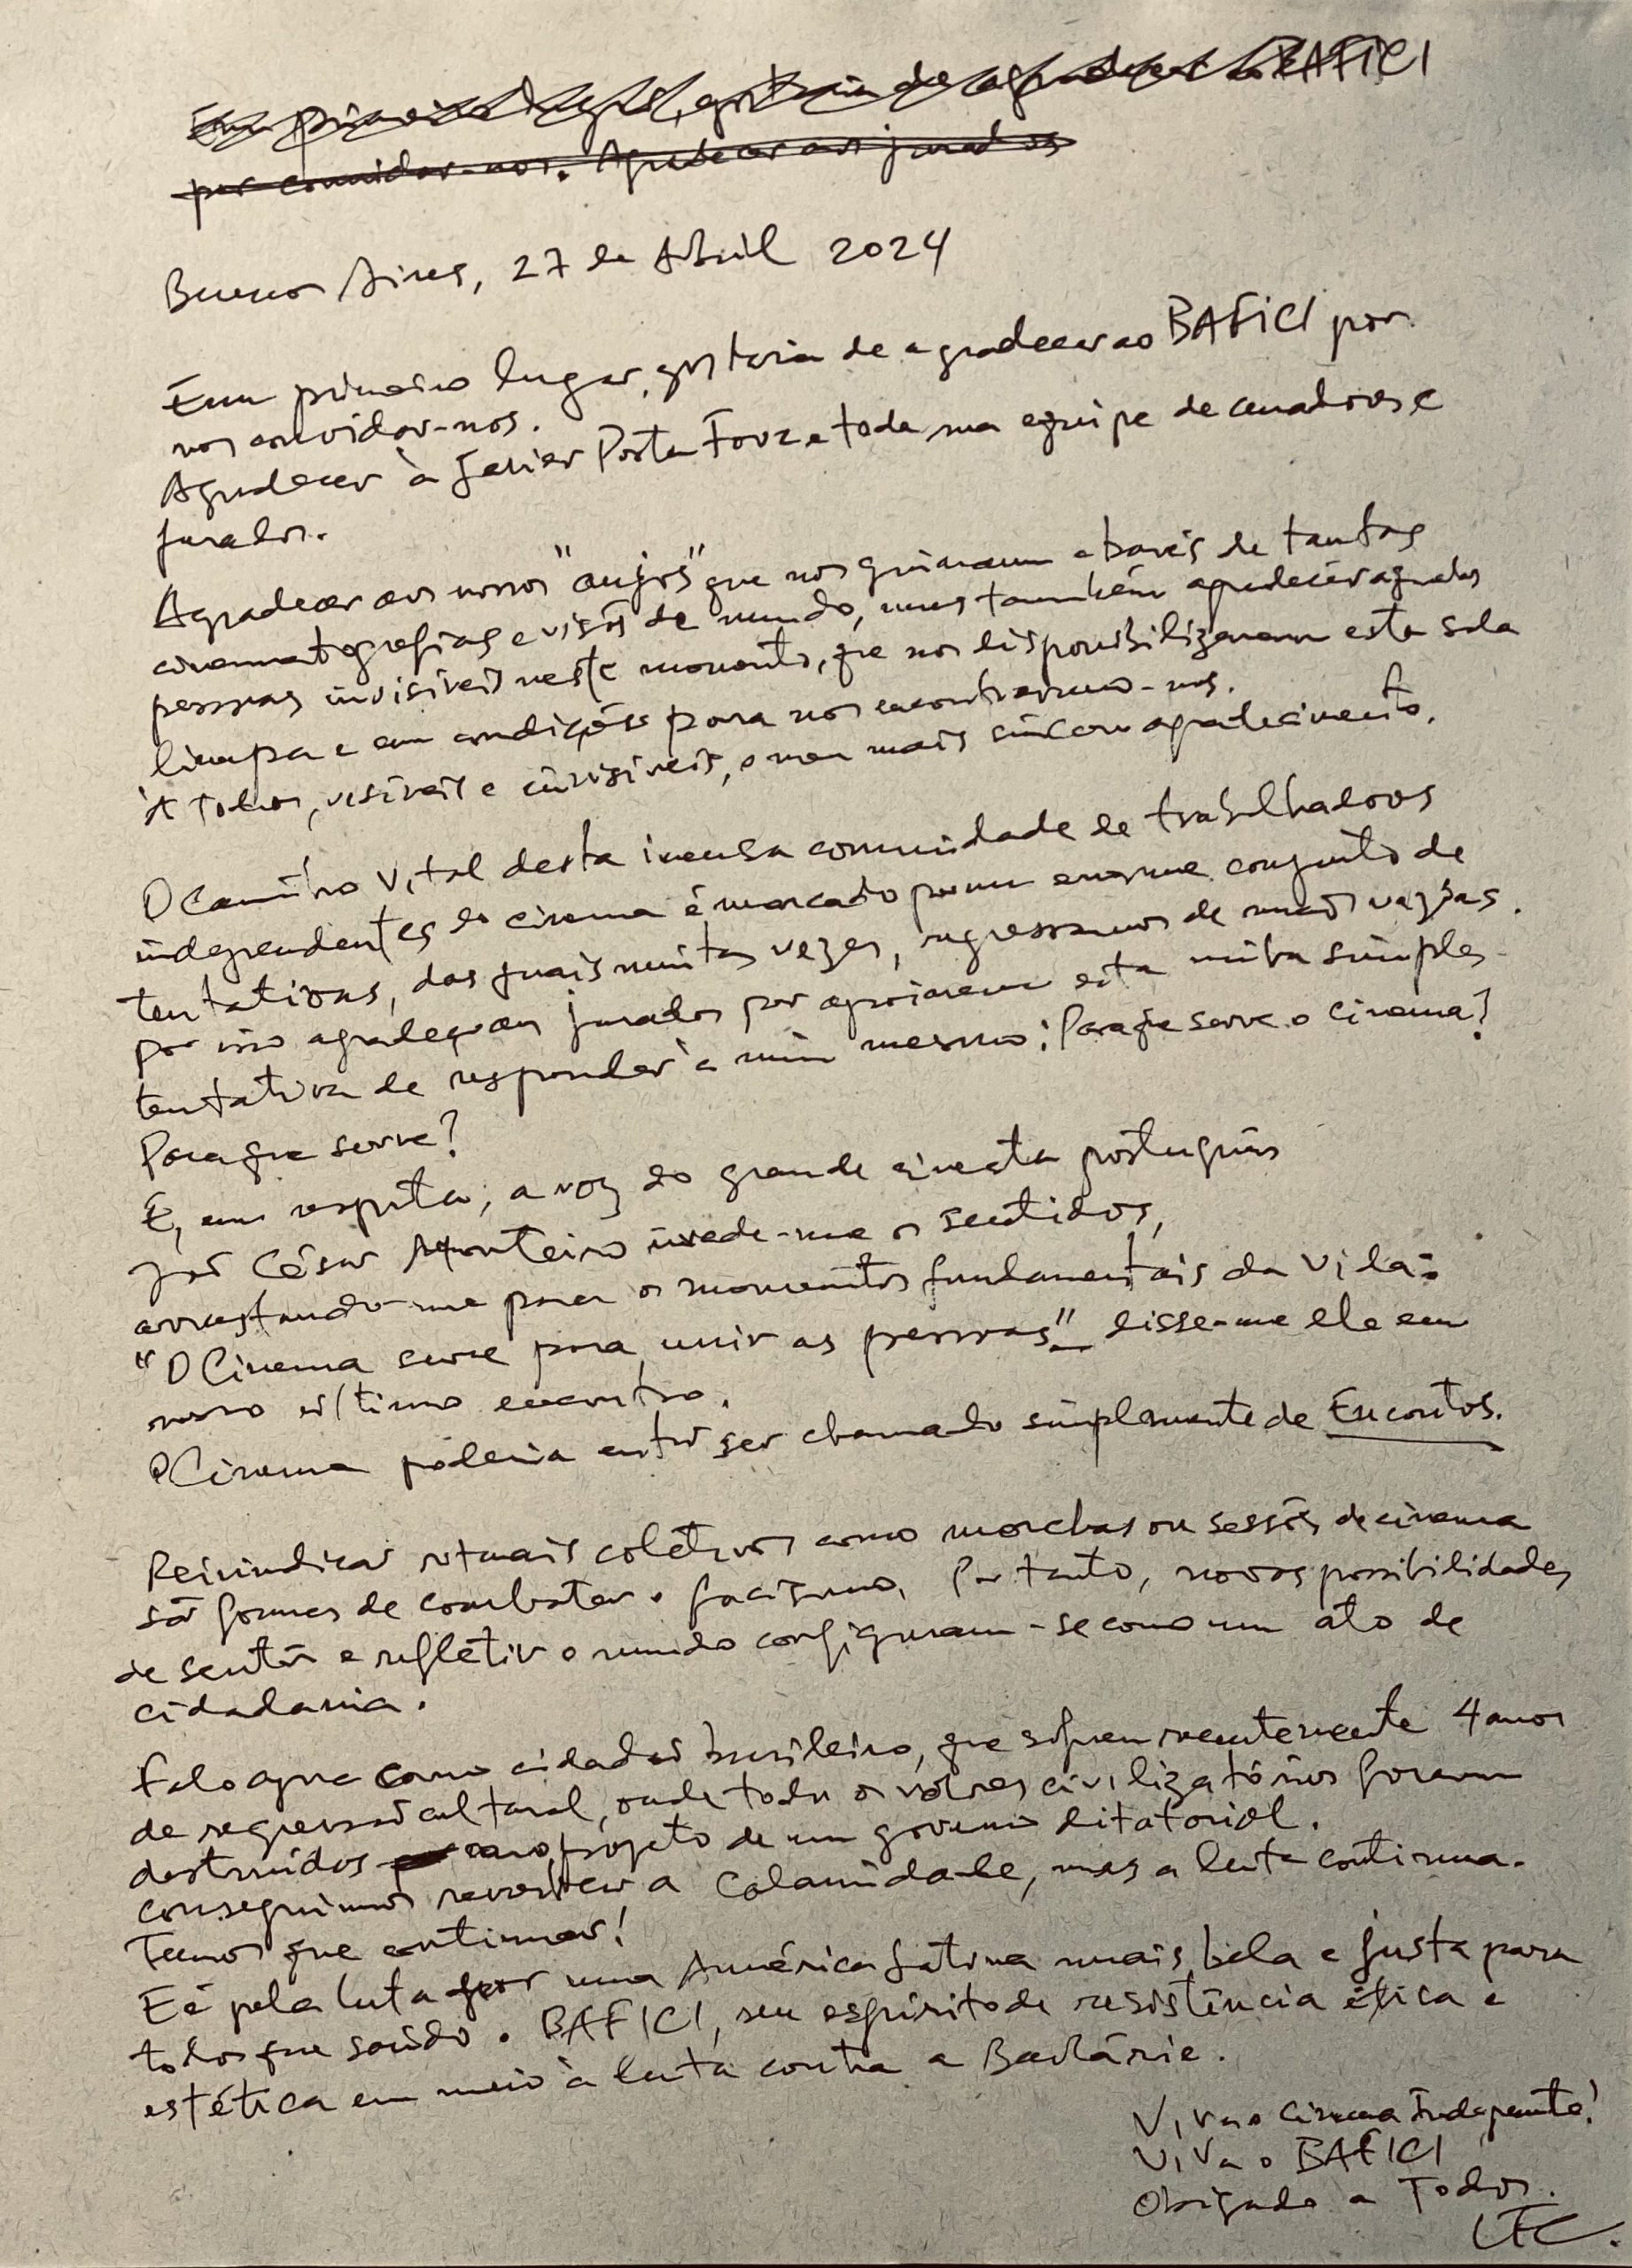 Em primeiro lugar, gostaria de agradecer ao BAFICI
por convidar-nos. Agradecer aos jurados
Buenos Aires, 27 de Abril 2024
Em primeiro lugar, gostaria de agradecer ao BAFICI por
nos convidar-nos.
Agradecer à Javier Porta Fouz e toda sua equipe de curadores e
jurados.
Agradecer aos nossos "anjos" que nos guiaram através de tantas
cinematografias e visões de mundo, mas também agradecer aquelas
pessoas invisíveis neste momento, que nos disponibilizaram esta sala
limpa e em condições para nos encontrarmo-nos.
À todos, visíveis e invisíveis, o meu mais sincero agradecimento.
O Caminho Vital desta imensa comunidade de trabalhadores
independentes do cinema é marcado por um enorme conjunto de
tentativas, das quais muitas vezes, regressamos de mãos vazias.
por isso agradeço aos jurados por apoiarem esta minha simples
tentativa de responder à mim mesmo: Para que serve o cinema?
Para que serve?
E, em resposta, a voz do grande cineasta português
João César Monteiro invade-me os sentidos,
arrastando-me para os momentos fundamentais da vida:
"O Cinema serve para unir as pessoas" disse-me ele em
nosso último encontro.
O Cinema poderia então ser chamado simplesmente de Encontros.
Reivindicar rituais coletivos como marchas ou sessões de cinema
são formas de combater o facismo. Portanto, novas possibilidades
de sentir e refletir o mundo configuram-se como um ato de
cidadania.
Falo aqui como cidadão brasileiro, que sofreu recentemente 4 anos
de regressão cultural, onde todos os valores civilizatórios foram
destruídos como projeto de um governo ditatorial.
Conseguimos reverter a Calamidade, mas a luta continua.
Temos que continuar!
E é pela luta por uma América Latina mais bela e justa para
todos que saúdo o BAFICI, seu espírito de resistência ética e
estética em meio à luta contra a Barbárie.
Viva o Cinema Independente!
Viva o BAFICI
Obrigado a Todos.